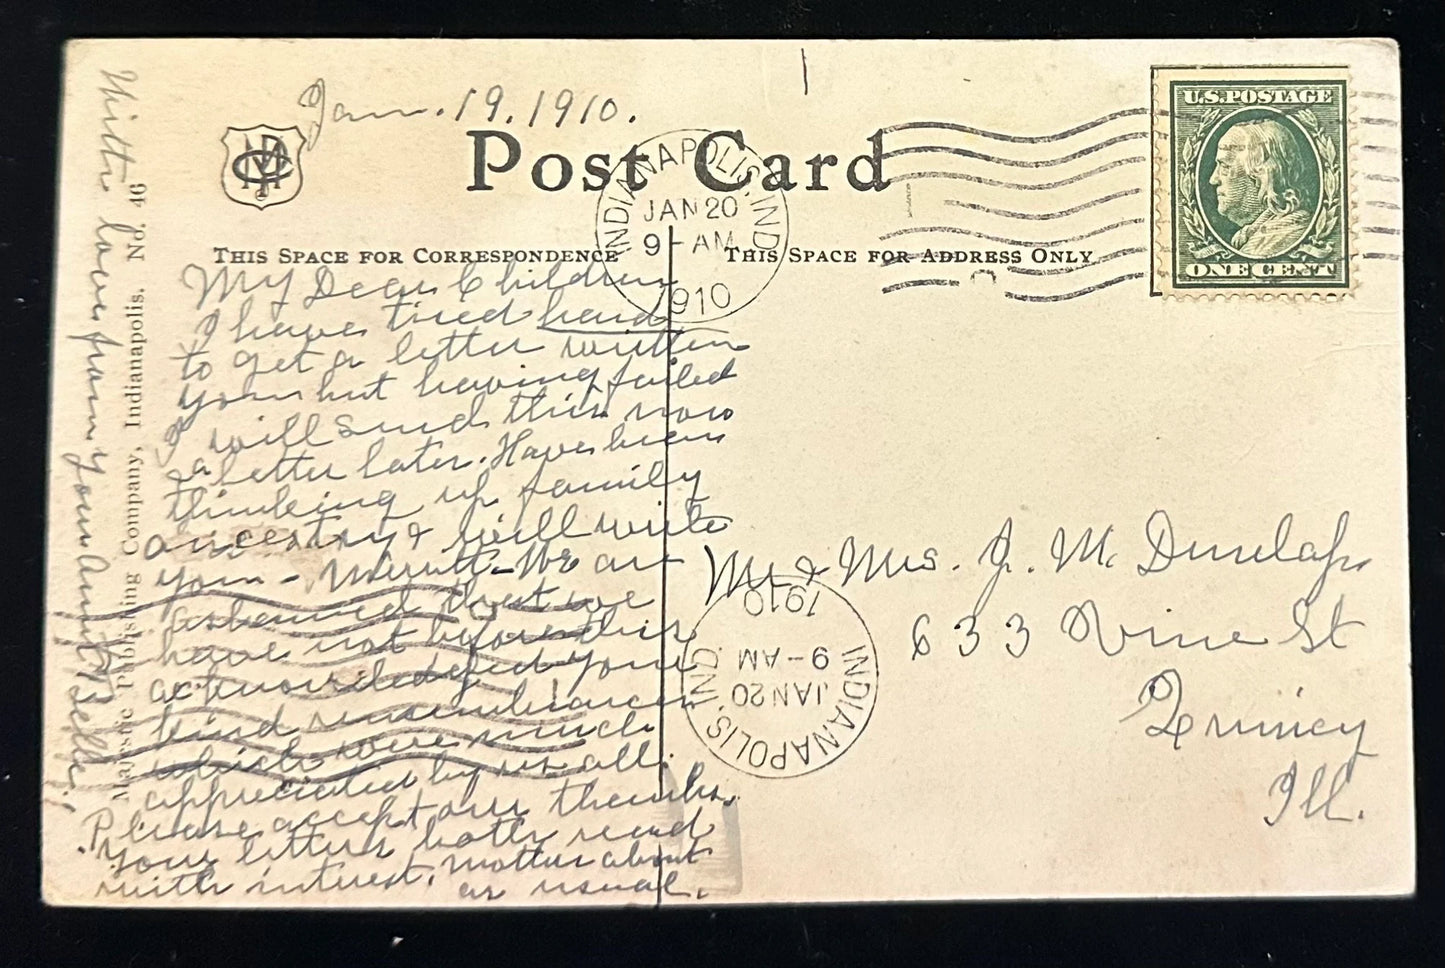 Jan. 19. 1910.
Post Card
INDIANAPOLIS, IND.
JAN 20
9 - AM
1910
U.S. POSTAGE
ONE CENT
THIS SPACE FOR CORRESPONDENCE
THIS SPACE FOR ADDRESS ONLY
My Dear Children
I have tried hard
to get a letter written
you but having failed
I will send this now
a letter later. Have been
thinking up family
ancestry & will write
you - Merritt - We are
ashamed that we
have not before this
acknowledged your
kind remembrances
which were much
appreciated by us all.
Please accept our thanks.
your letters both read
with interest. Mother about
as usual.
With love from your Aunt Belle.
Majestic Publishing Company, Indianapolis. No. 46
Mr & Mrs. J. M. Dunlap
633 Vine St
Quincy
Ill.
INDIANAPOLIS, IND.
JAN 20
9 - AM
1910